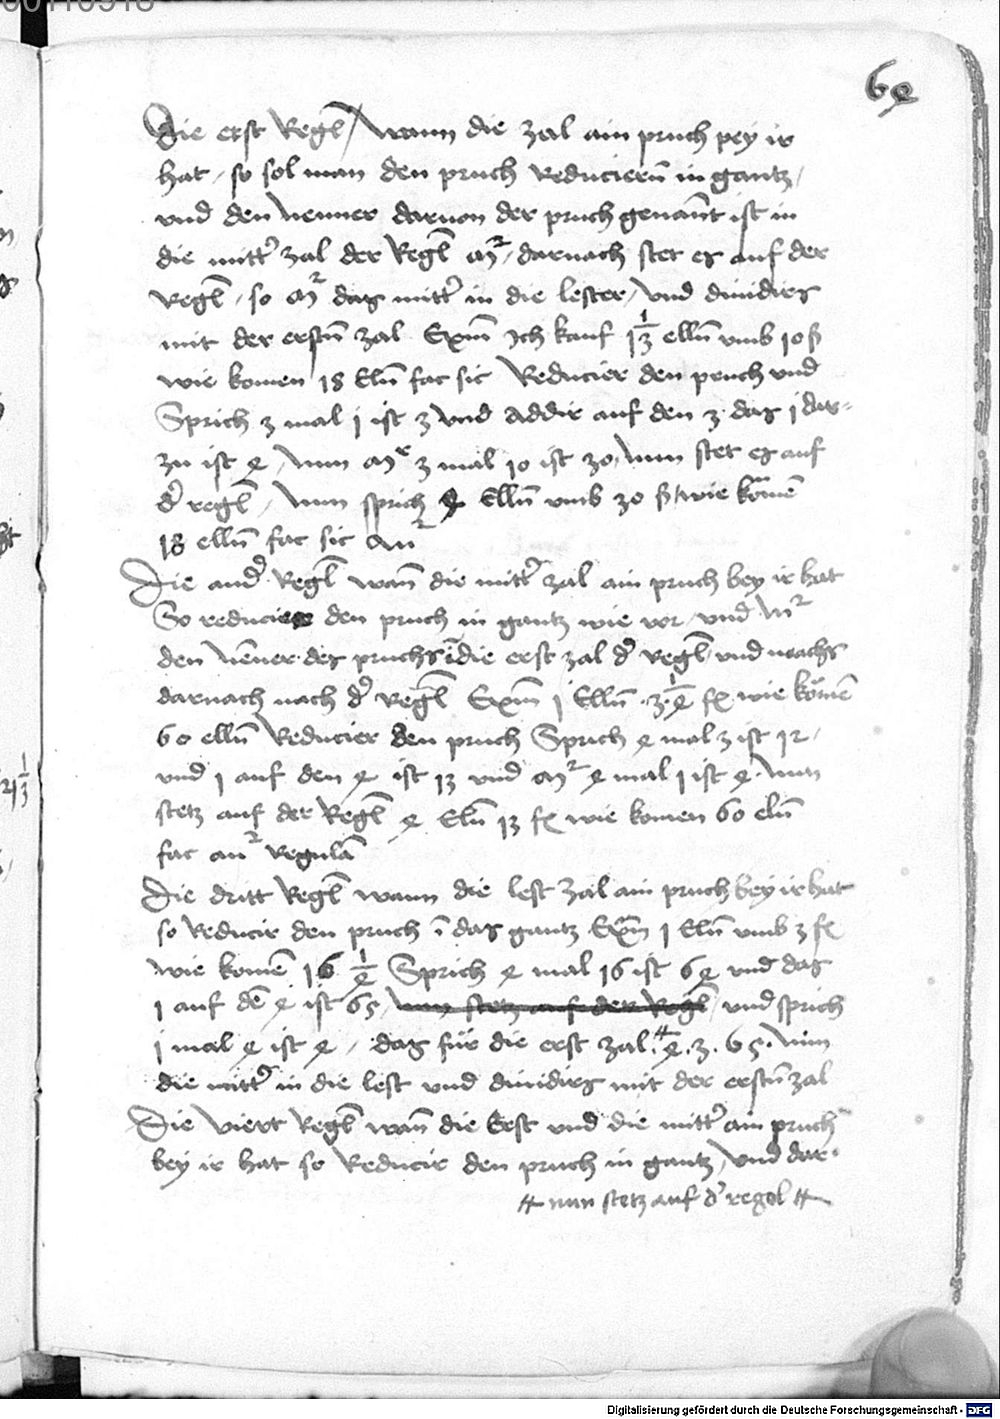 00110918
64
Die erst Regl / Wann die zal ain pruch pey ir
hat / so sol man den pruch Reduciern̄ in gantz /
vnd den Nenner daruon der pruch genan̄t ist in
die mitt' zal der Regl m², darnach stet es auf der
Regl / so m² das mitt' in die lester / Vnd diuidirs
mit der erstn̄ zal Exm̄ Jch kauf 1 1/3 elln̄ vmb 10 ß
wie komen 18 Eln̄ fac sic Reducier den pruch vnd
Sprich 3 mal 1 ist 3 Vnd Addir auf den 3 das 1 dar=
zu ist 4 / Nun m² 3 mal 10 ist 30, Nun stet es auf
d' regl / Nun sprich 4 Elln̄ vmb 30 ß / wie kōmē
18 elln̄ fac sic m²
Die and' Regl wan̄ die mitt' zal ain pruch bey ir hat
So reducier den pruch in gantz wie vor / vnd M²
den Nēner des pruchs ī die erst zal d' regl / vnd machs
darnach nach d' Regl Exm̄ 1 Elln̄ 3 1/4 fl wie kōmē
60 elln̄ Reducier den pruch Sprich 4 mal 3 ist 12 /
vnd 1 auf den 4 ist 13 vnd m² 4 mal 1 ist 4 Nun
stetz auf der Regl 4 Eln̄ 13 fl wie komen 60 eln̄
fac m² Regulā
Die dritt Regl wann die lest zal ain pruch bey ir hat
so Reducir den pruch ī das gantz Exm̄ 1 Eln̄ vmb 3 fl
wie komē 16 1/4 Sprich 4 mal 16 ist 64 vnd das
1 auf dē 4 ist 65 / nun stetz auf der Regl vnd sprich
1 mal 4 ist 4 / das für die erst zal ⌗ 4. 3. 65. Nim
die mitt' in die lest vnd diuidirs mit der erstn̄ zal
Die Viert Regl wan̄ die Erst vnd die mitt' ain pruch
bey ir hat so Reducir den pruch in gantz / Vnd dar=
⌗ nun stetz auf d' regel ⌗
21 1/3
Digitalisierung gefördert durch die Deutsche Forschungsgemeinschaft - DFG